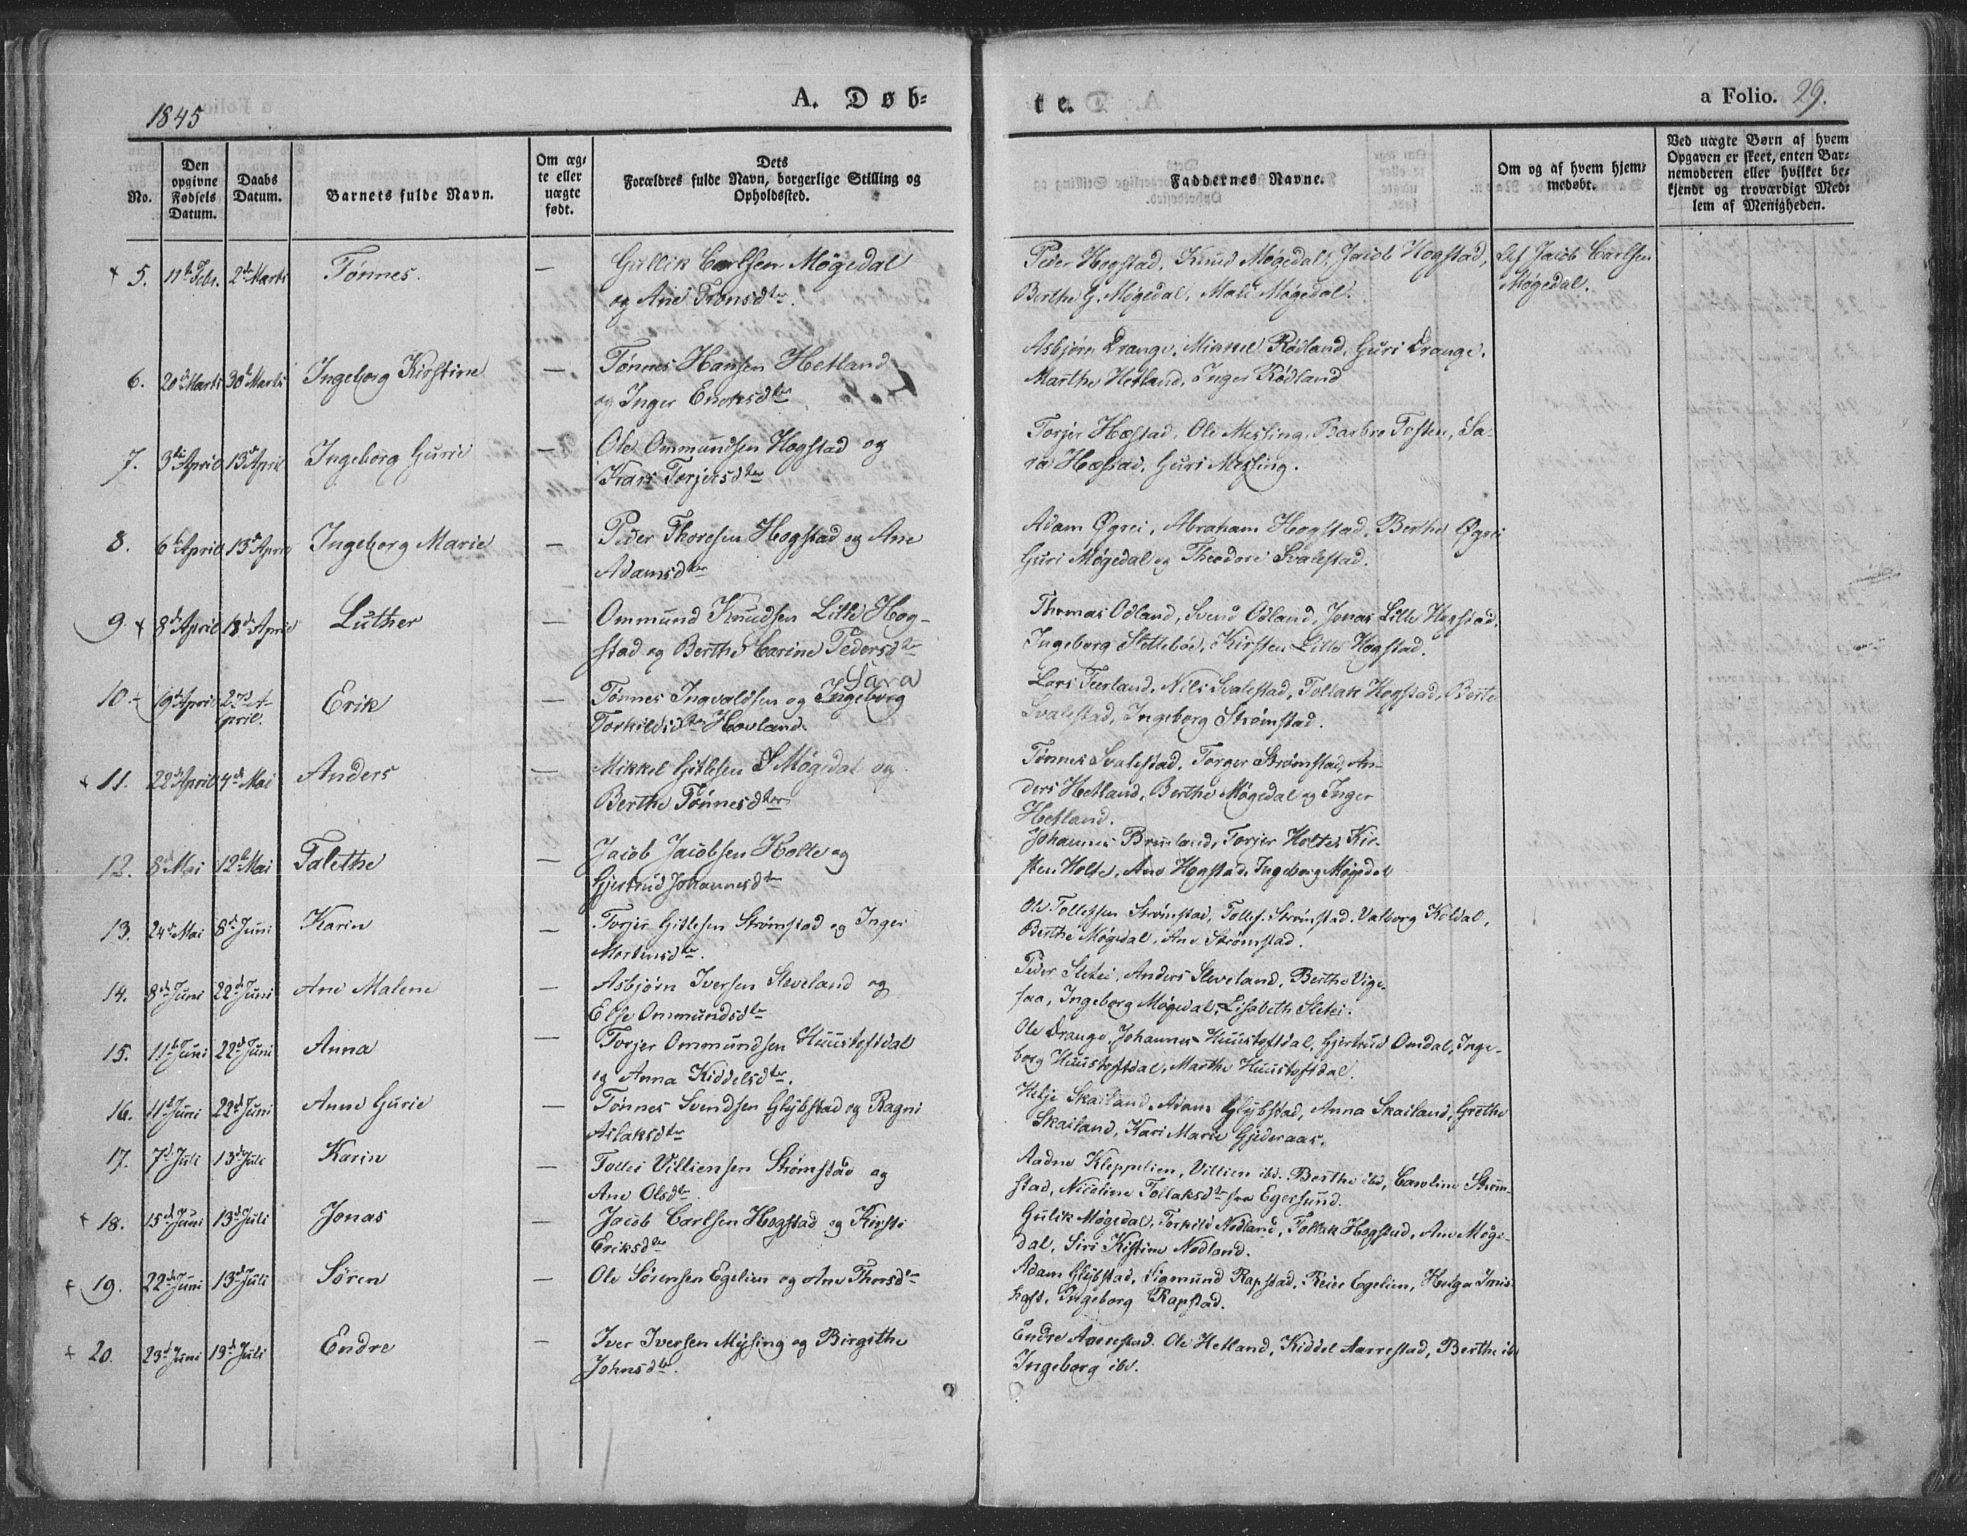 1845
A. Døb-
te.
a Folio. 29.
No.
Den opgivne Fødsels Datum.
Daabs Datum.
Barnets fulde Navn.
Om æg-te eller uægte født.
Dets Forældres fulde Navn, borgerlige Stilling og Opholdssted.
Faddernes Navne.
Om og af hvem hjem-medøbt.
Ved uægte Børn af hvem Opgaven er skeet, enten Bar-nemoderen eller hvilket be-kjendt og troværdigt Med-lem af Menigheden.
5. 11te Febr. 2den Marts Tønnes. — Gullik Carlsen Møgedal
og Ane Tronsdtr.
Peder Hogstad, Knud Møgedal, Jacob Hogstad,
Berthe G. Møgedal, Mali Møgedal.
af Jacob Carlsen
Møgedal.
6. 20de Marts 30te Marts Ingeborg Kirstine — Tønnes Hansen Hetland
og Inger Endresdtr
Asbjørn Drange, Mikkel Rødland, Guri Drange,
Marthe Hetland, Inger Rødland
7. 3die April 13de April Ingeborg Gurie — Ole Ommundsen Hogstad og
Torjersdtr
Torjer Hæstad, Ole Messing, Barbro Tosten, Sa-
ra Hæstad, Guri Messing.
8. 6te April 13de April Ingeborg Marie — Peder Thoresen Hogstad og Ane
Adamsdtr
Adam Øgrei, Abraham Hogstad, Berthe Øgrei
Guri Møgedal og Theodore Svalestad.
9. 8de April 13de April Luther Ommund Knudsen Lille Hog-
stad og Berthe Carine Pedersdtr
Thomas Odland, Svend Odland, Jonas Lille Hogstad,
Ingeborg Slettebød, Kirsten Lille Hogstad.
10. 19de April 27de A-
pril. Erik — Tønnes Ingvaldsen og Ingeborg
Sara
Torkildsdtr Hovland.
Lars Teerland, Nils Svalestad, Tollak Hogstad, Berte
Svalestad, Ingeborg Strømstad.
11. 22de April 4de Mai Anders — Mikkel Gitlesen S Møgedal og
Berthe Tønnesdtr
Tønnes Svalestad, Torger Strømstad, An-
ders Hetland, Berthe Møgedal og Inger
Hetland.
12. 8de Mai 12te Mai Talethe — Jacob Jacobsen Holte og
Gjertrud Johannesdtr
Johannes Bruuland, Torjer Holte, Kir-
sten Holte, Ane Hogstad, Ingeborg Møgedal
13. 24de Mai 8de Juni Karin — Torjer Gitlesen Strømstad og Inger
Mortensdtr.
Ole Tollefsen Strømstad, Tollef. Strømstad. Valborg Koldal,
Berthe Møgedal, Ane Strømstad.
14. 8de Juni 22de Juni Ane Malene — Asbjørn Iversen Sleveland og
Else Ommundsdtr
Peder Sletei, Anders Sleveland, Berthe Vige-
saa, Ingeborg Møgedal, Lisabeth Sletei.
15. 11te Juni 22de Juni Anna — Torjer Ommundsen Huustoftdal
og Anna Kiddelsdtr.
Ole Drange, Johannes Huustoftdal, Gjertrud Omdal, Inge-
borg Huustoftdal, Marthe Huustoftdal.
16. 11te Juni 22de Juni Anne Gurie — Tønnes Svendsen Glybstad og Ragni
Aslaksdtr
Helje Skailand, Adam Glybstad, Anna Skailand, Grethe
Skailand, Kari Marie Gjederaas.
17. 7de Juli 13de Juli Karin — Tollei Villiensen Strømstad og
Ane Olsdtr.
Aadne Kleppelien, Villien ibd. Berthe ibd, Caroline Strøm-
stad, Nicoline Tollaksdtr fra Egersund.
18. 15de Juni 13de Juli Jonas — Jacob Carlsen Hogstad og Kirsti
Eriksdtr
Gulik Møgedal, Torkild Nodland, Tollak Hogstad, Ane Møge-
dal, Siri Kistine Nodland.
19. 22de Juni 13de Juli Søren — Ole Sørensen Egelien og Ane Thorsdtr
Adam Glybstad, Sigmund Rapstad, Reier Egelien, Helga
Ingeborg Rapstad.
20. 23de Juni 19de Juli Endre — Iver Iversen Mysing og Birgithe
Johnsdtr.
Endre Aarrestad. Ole Hetland, Kiddel Aarrestad, Berthe ibd
Ingeborg ibd.